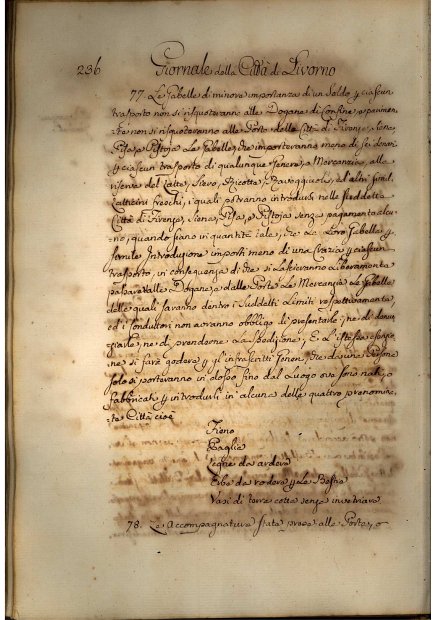 236 Giornale della Città di Livorno
77. Le Gabelle di minore importanza di un Soldo p ciascun
trasporto non si risquoteranno alle Dogane di Confine, e parimen-
te non si risquoteranno alle Porte delle Città di Firenze, Siena,
Pisa, e Pistoja le Gabelle, che importeranno meno di sei denari
p ciascun trasporto di qualunque Genere, o Mercanzia, alla
riserva del Latte, Ricotta, Raveggiuoli, ed altri simil
Latticini freschi, i quali potranno introdursi nelle suddette
Città di Firenze, Siena, Pisa, e Pistoja senza pagamento alcu-
no, quando siano in quantità tale, che la Loro Gabella p
simile Introduzione importi meno di una Crazia p ciascun
trasporto, in conseguenza di che si Lascieranno Liberamente
passare alle Dogane, e dalle Porte Le Mercanzie Le Gabelle
delle quali saranno dentro i suddetti Limiti respettivamente,
ed i Conduttori non avranno obbligo di presentarle, ne di denun-
ziarle, ne di prenderne La spedizione; E L'istessa esenzio-
ne si farà godere p gl' infrascritti Generi, che da una Persona
solo si porteranno in dosso fino dal Luogo ove sono nati, o
fabbricati p introdursi in alcuna delle quattro prenomina-
te Città cioè
Fieno
Paglia
Legne da ardere
Erba da rodere p le Bestie
Vasi di terra cotta senza invetriare
78. Le accompagnature state prese alle Porte, o